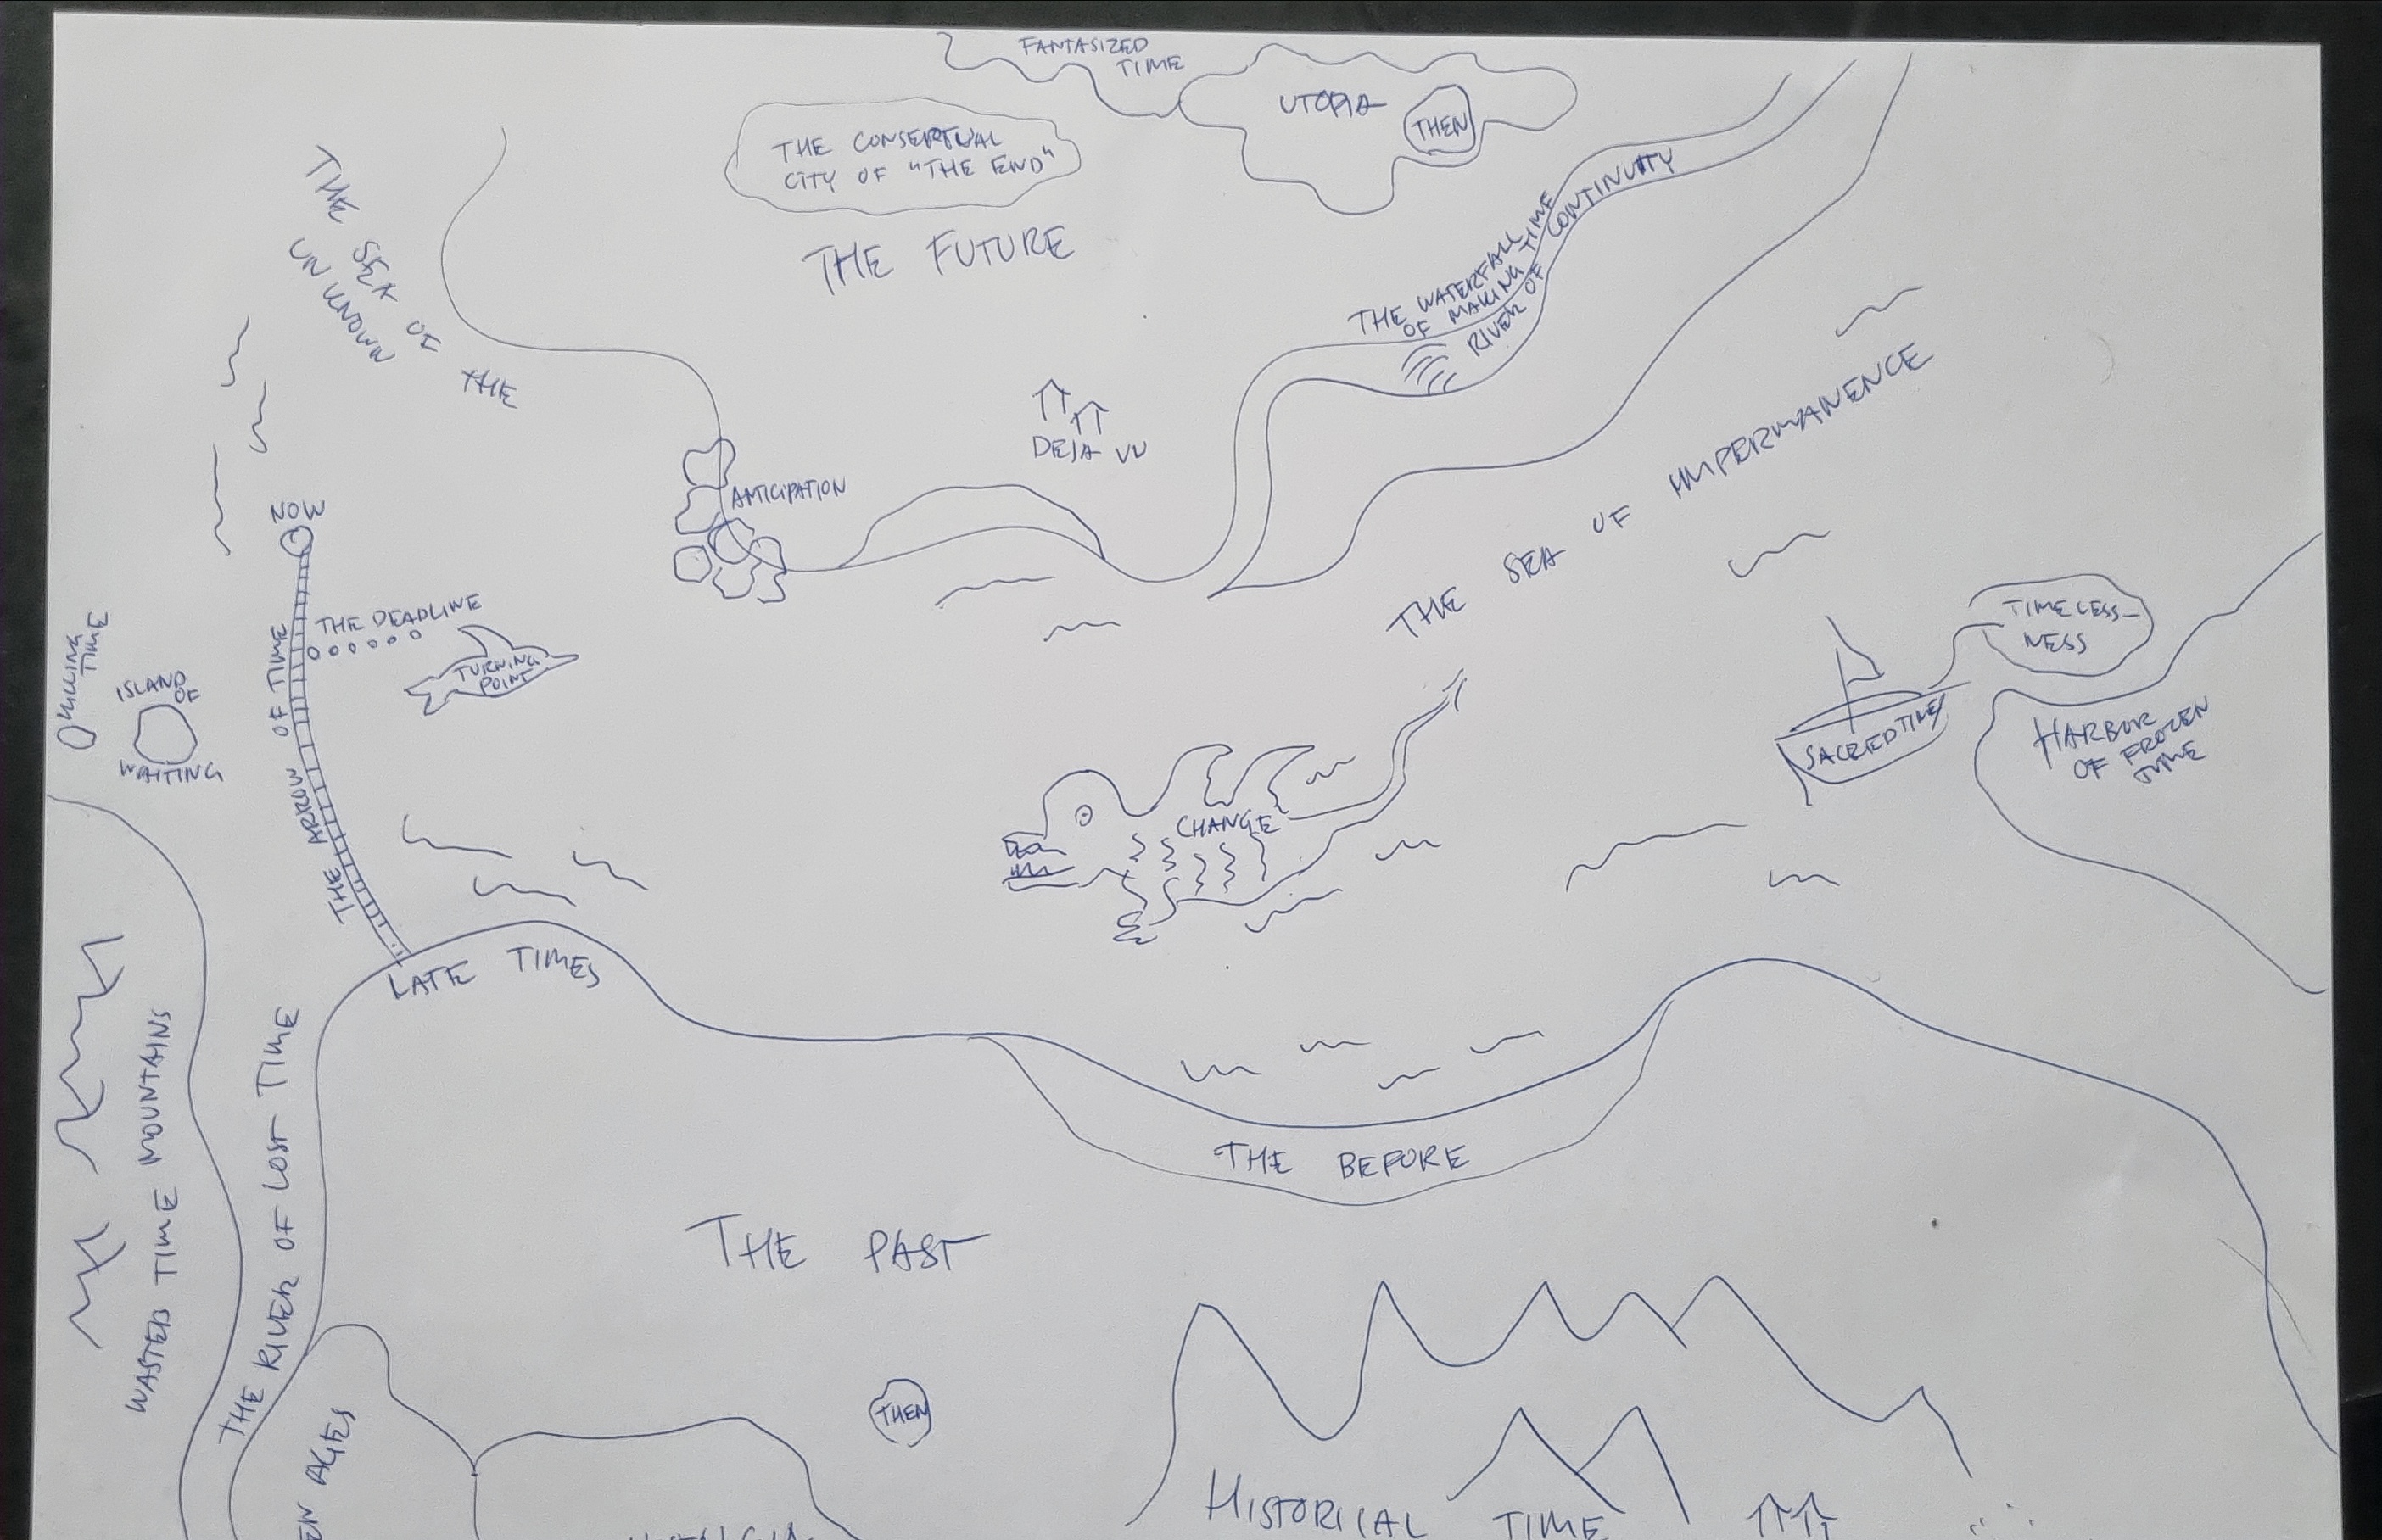 FANTASIZED
TIME
UTOPIA
THEN
THE CONSEPTUAL
CITY OF "THE END"
THE FUTURE
THE SEA OF THE
UNKNOWN
THE WATERFALL
OF MAKING TIME
RIVER OF CONTINUITY
DEJA VU
ANTICIPATION
THE SEA OF IMPERMANENCE
NOW
THE ARROW OF TIME
THE DEADLINE
TURNING
POINT
KILLING
TIME
ISLAND
OF
WAITING
TIMELESS-
NESS
SACRED TIME
HARBOR
OF FROZEN
TIME
CHANGE
LATE TIMES
WASTED TIME MOUNTAINS
THE RIVER OF LOST TIME
THE BEFORE
THE PAST
THEN
EN AGES
HISTORICAL TIME